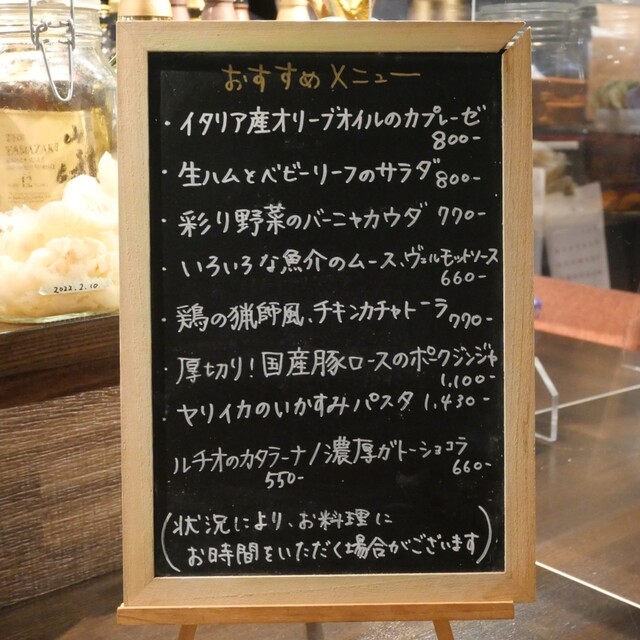 おすすめメニュー
・イタリア産オリーブオイルのカプレーゼ
800-
・生ハムとベビーリーフのサラダ 800-
・彩り野菜のバーニャカウダ 770-
・いろいろな魚介のムース、ヴェルモットソース
660-
・鶏の猟師風、チキンカチャトーラ 770-
・厚切り！国産豚ロースのポークジンジャ
1,100-
・ヤリイカのいかすみパスタ 1,430-
ルチオのカタラーナ/濃厚ガトーショコラ
550- 660-
(状況により、お料理に
お時間をいただく場合がございます)
THE
YAMAZAKI
山崎
12
2022.2.10